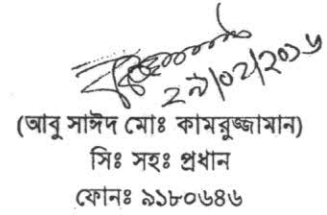 ২৯/০২/২০১৬
(আবু সাঈদ মোঃ কামরুজ্জামান)
সিঃ সহঃ প্রধান
ফোনঃ ৯১৮০৬৪৬